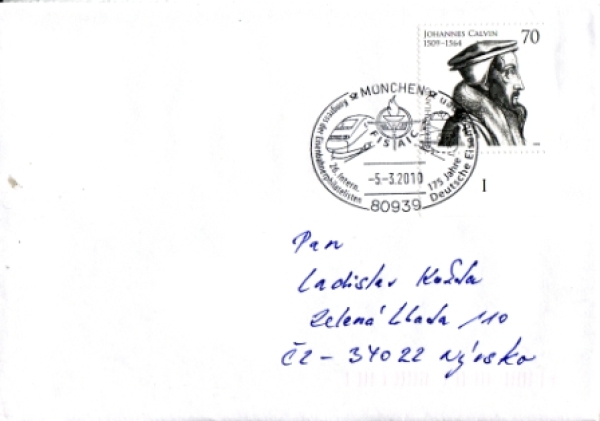 JOHANNES CALVIN 70
1509–1564
MÜNCHEN
Kongress der Eisenbahnerphilatelisten
26. Intern.
FISAIC
175 Jahre
Deutsche
-5.-3.2010
80939
I
Pan
Ladislav
Zelená 110
ČZ - 34022 Nýrsko